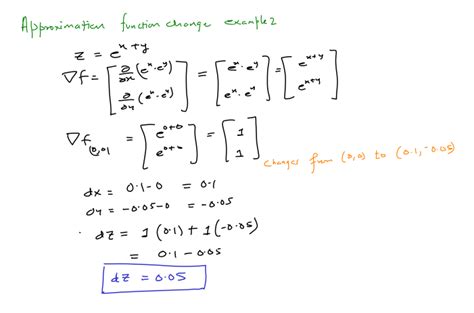 Approximation function change example 2
z = e^{x+y}
∇f = [ ∂/∂x (e^x·e^y) ; ∂/∂y (e^x·e^y) ] = [ e^x·e^y ; e^x·e^y ] = [ e^{x+y} ; e^{x+y} ]
∇f_{(0,0)} = [ e^{0+0} ; e^{0+0} ] = [ 1 ; 1 ]
changes from (0,0) to (0.1,-0.05)
dx = 0.1-0 = 0.1
dy = -0.05-0 = -0.05
dz = 1(0.1) + 1(-0.05)
= 0.1 - 0.05
dz = 0.05